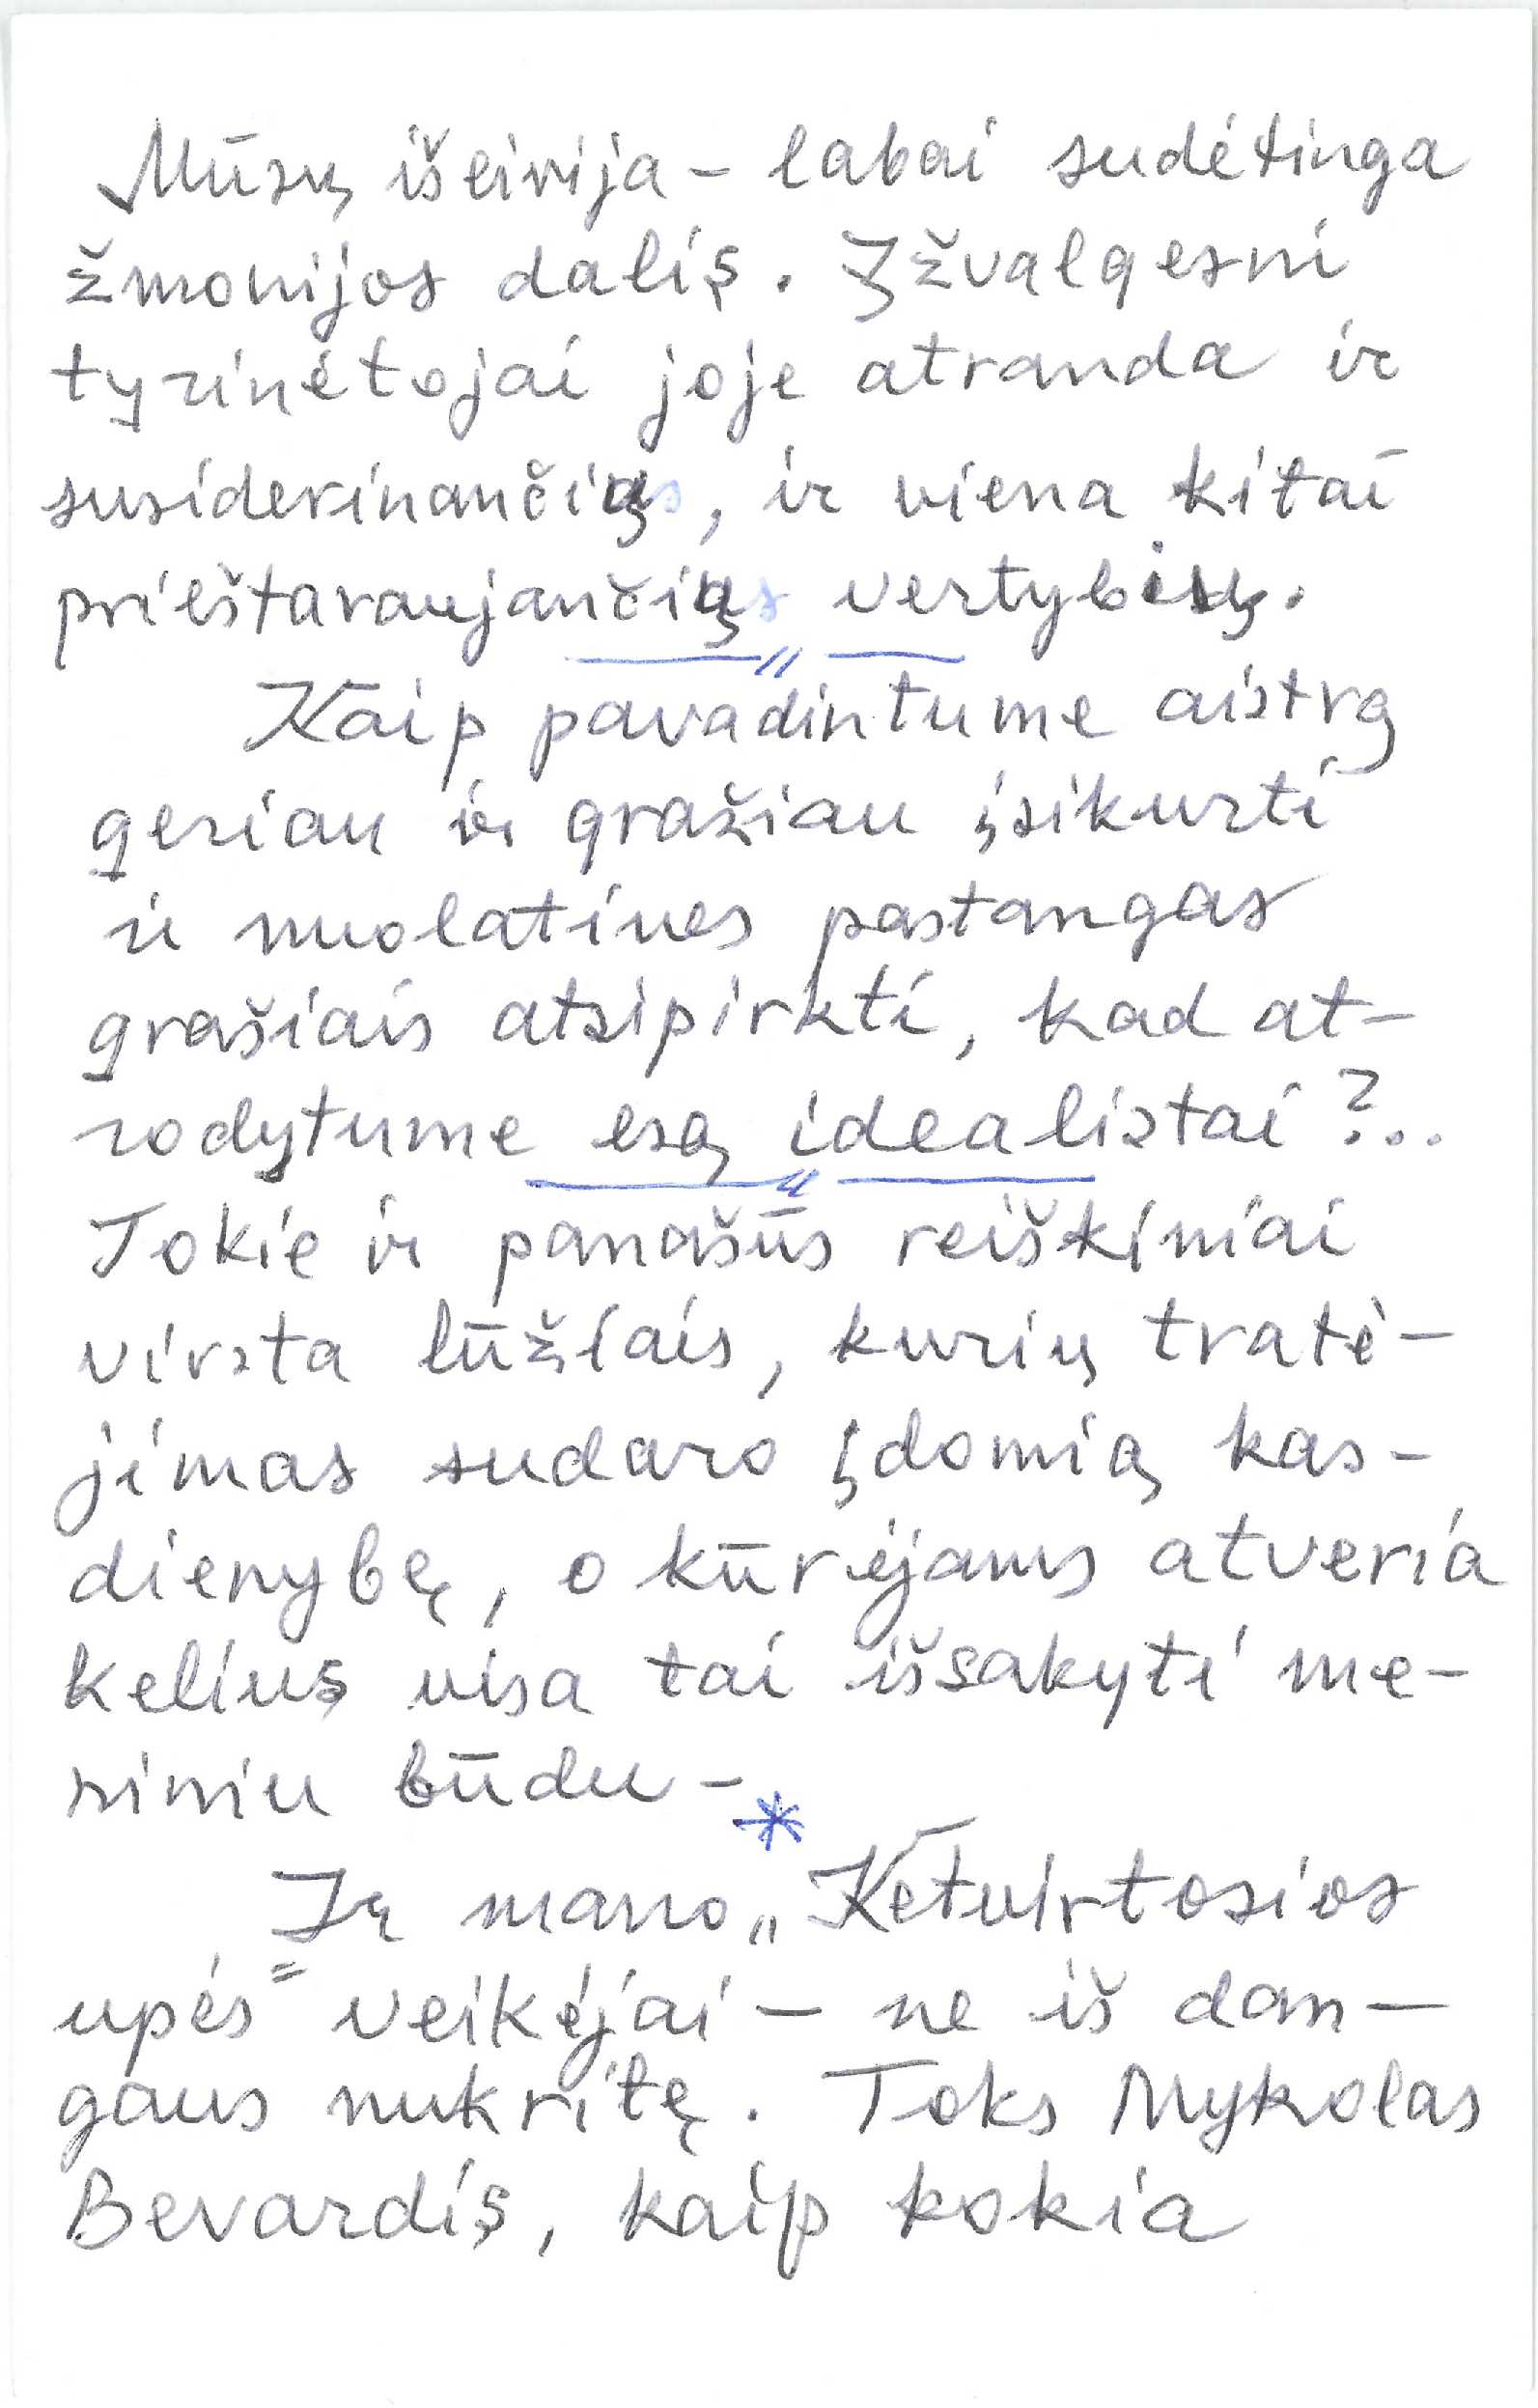 Mūsų išeivija – labai sudėtinga
žmonijos dalis. Įžvalgesni
tyrinėtojai joje atranda ir
susiderinančių, ir viena kitai
prieštaraujančių vertybių.
Kaip pavadintume aistrą
geriau ir gražiau įsikurti
ir nuolatines pastangas
grašiais atsipirkti, kad at-
rodytume esą idealistai?..
Tokie ir panašūs reiškiniai
virsta lūžiais, kurių tratė-
jimas sudaro įdomią kas-
dienybę, o kūrėjams atveria
kelius visa tai išsakyti me-
niniu būdu –
*
Ir mano „Ketvirtosios
upės" veikėjai – ne iš dan-
gaus nukritę. Toks Mykolas
Bevardis, kaip kokia